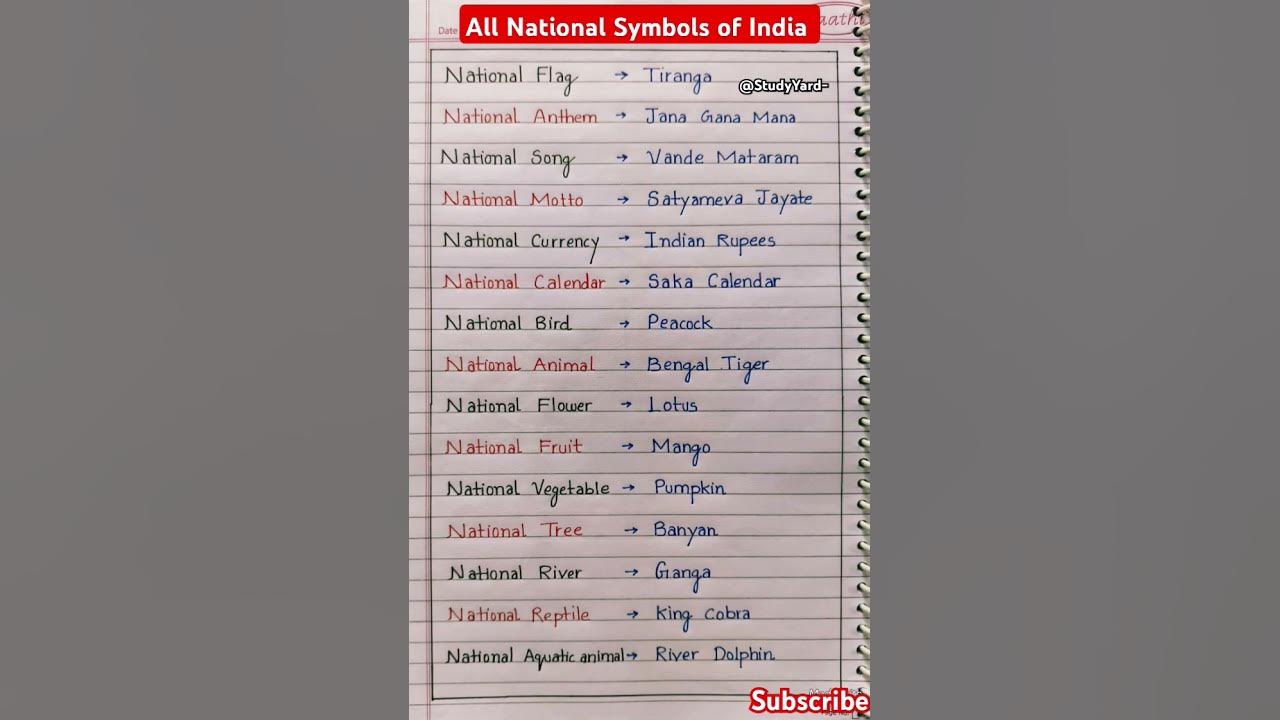 All National Symbols of India
Date
National Flag → Tiranga
@StudyYard-
National Anthem → Jana Gana Mana
National Song → Vande Mataram
National Motto → Satyameva Jayate
National Currency → Indian Rupees
National Calendar → Saka Calendar
National Bird → Peacock
National Animal → Bengal Tiger
National Flower → Lotus
National Fruit → Mango
National Vegetable → Pumpkin
National Tree → Banyan
National River → Ganga
National Reptile → King Cobra
National Aquatic animal → River Dolphin
Subscribe